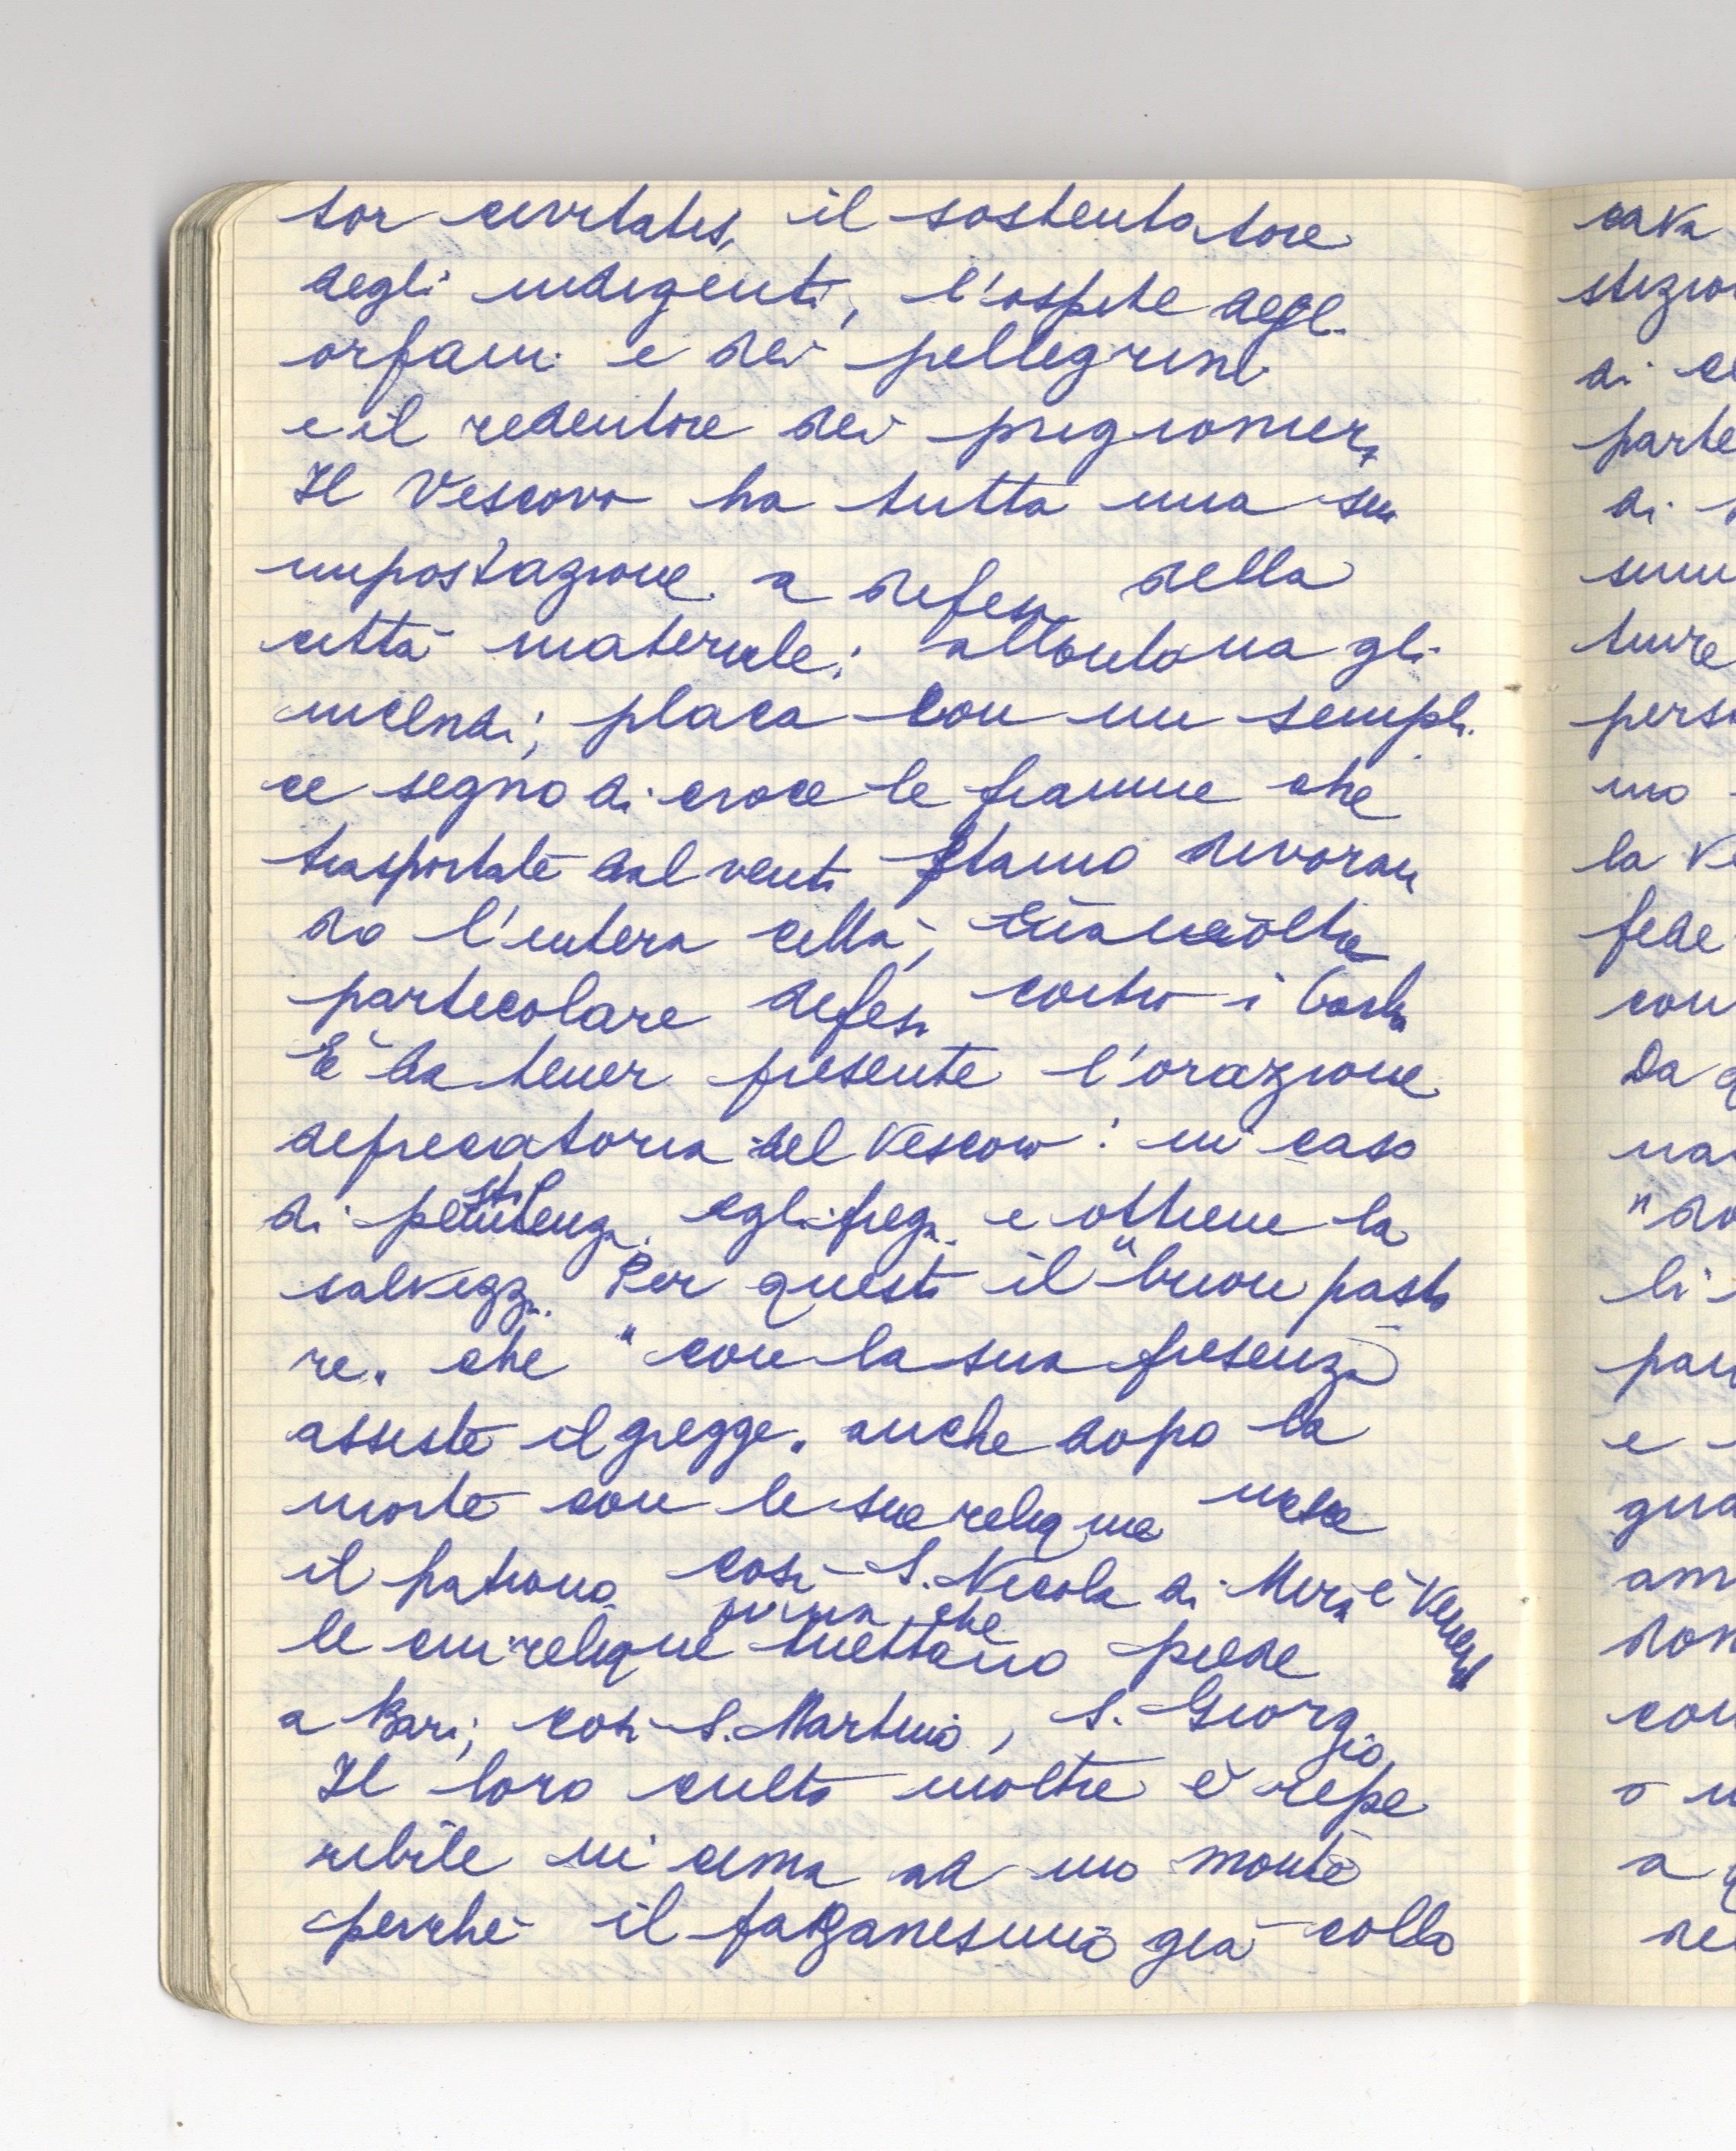 tor civitatis, il sostentatore
degli indigenti, l'ospite degli
orfani e dei pellegrini
e il redentore dei prigionieri.
Il Vescovo ha tutta una sua
impostazione a difesa della
città materiale: allontana gli
incendi; placa con un sempli
ce segno di croce le fiamme che
trasportate dal vento stanno divoran
do l'intera città;
particolare difesa contro i Goti.
È da tener presente l'orazione
deprecatoria del Vescovo: in caso
di pestilenza egli prega e ottiene la
salvezza. Per questo il "buon pasto
re" che "con la sua presenza
assiste il gregge" anche dopo la
morte con le sue reliquie resta
il patrono così S. Nicola di Mira è Venerato
le cui reliquie prima che mettano piede
a Bari; così S. Martino, S. Giorgio.
Il loro culto inoltre è repe
ribile in cima ad un monte
perché il paganesimo già collo
cava
stizion
di ce
parte
di
la Ve
fede
con
Da q
"do
li
e
gua
am
don
con
o
a